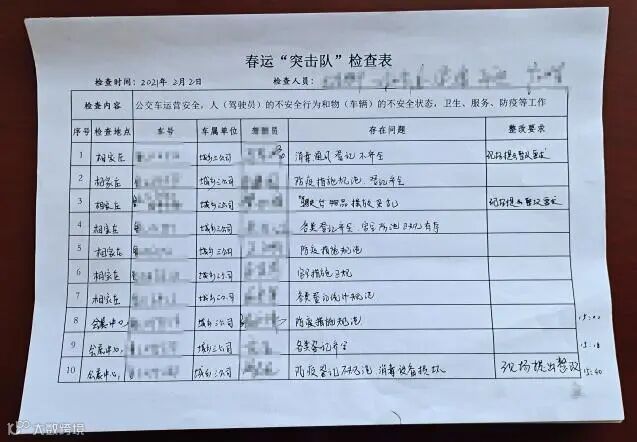 春运“突击队”检查表
检查时间：2021年2月2日 检查人员：
检查内容 公交车运营安全，人（驾驶员）的不安全行为和物（车辆）的不安全状态，卫生、服务、防疫等工作
序号 检查地点 车号 车属单位 员 存在问题 整改要求
1 相家庄 城乡三公司 消毒通风登记不齐全 现场提出整改要求
2 相家庄 城乡三公司 防疫措施规范，登记齐全
3 相家庄 城乡三公司 物品摆放 现场提出整改要求
4 相家庄 城乡三公司 各类登记齐全，
5 相家庄 城乡三公司 防疫措施规范
6 相家庄 城乡三公司 措施
7 相家庄 城乡三公司 各类登记统计规范
8 会展中心 城乡三公司 防疫措施规范
9 会展中心 城乡三公司 各类登记齐全
10 会展中心 城乡三公司 防疫登记不规范，消毒设备损坏 现场提出整改 15:40
大数跨境